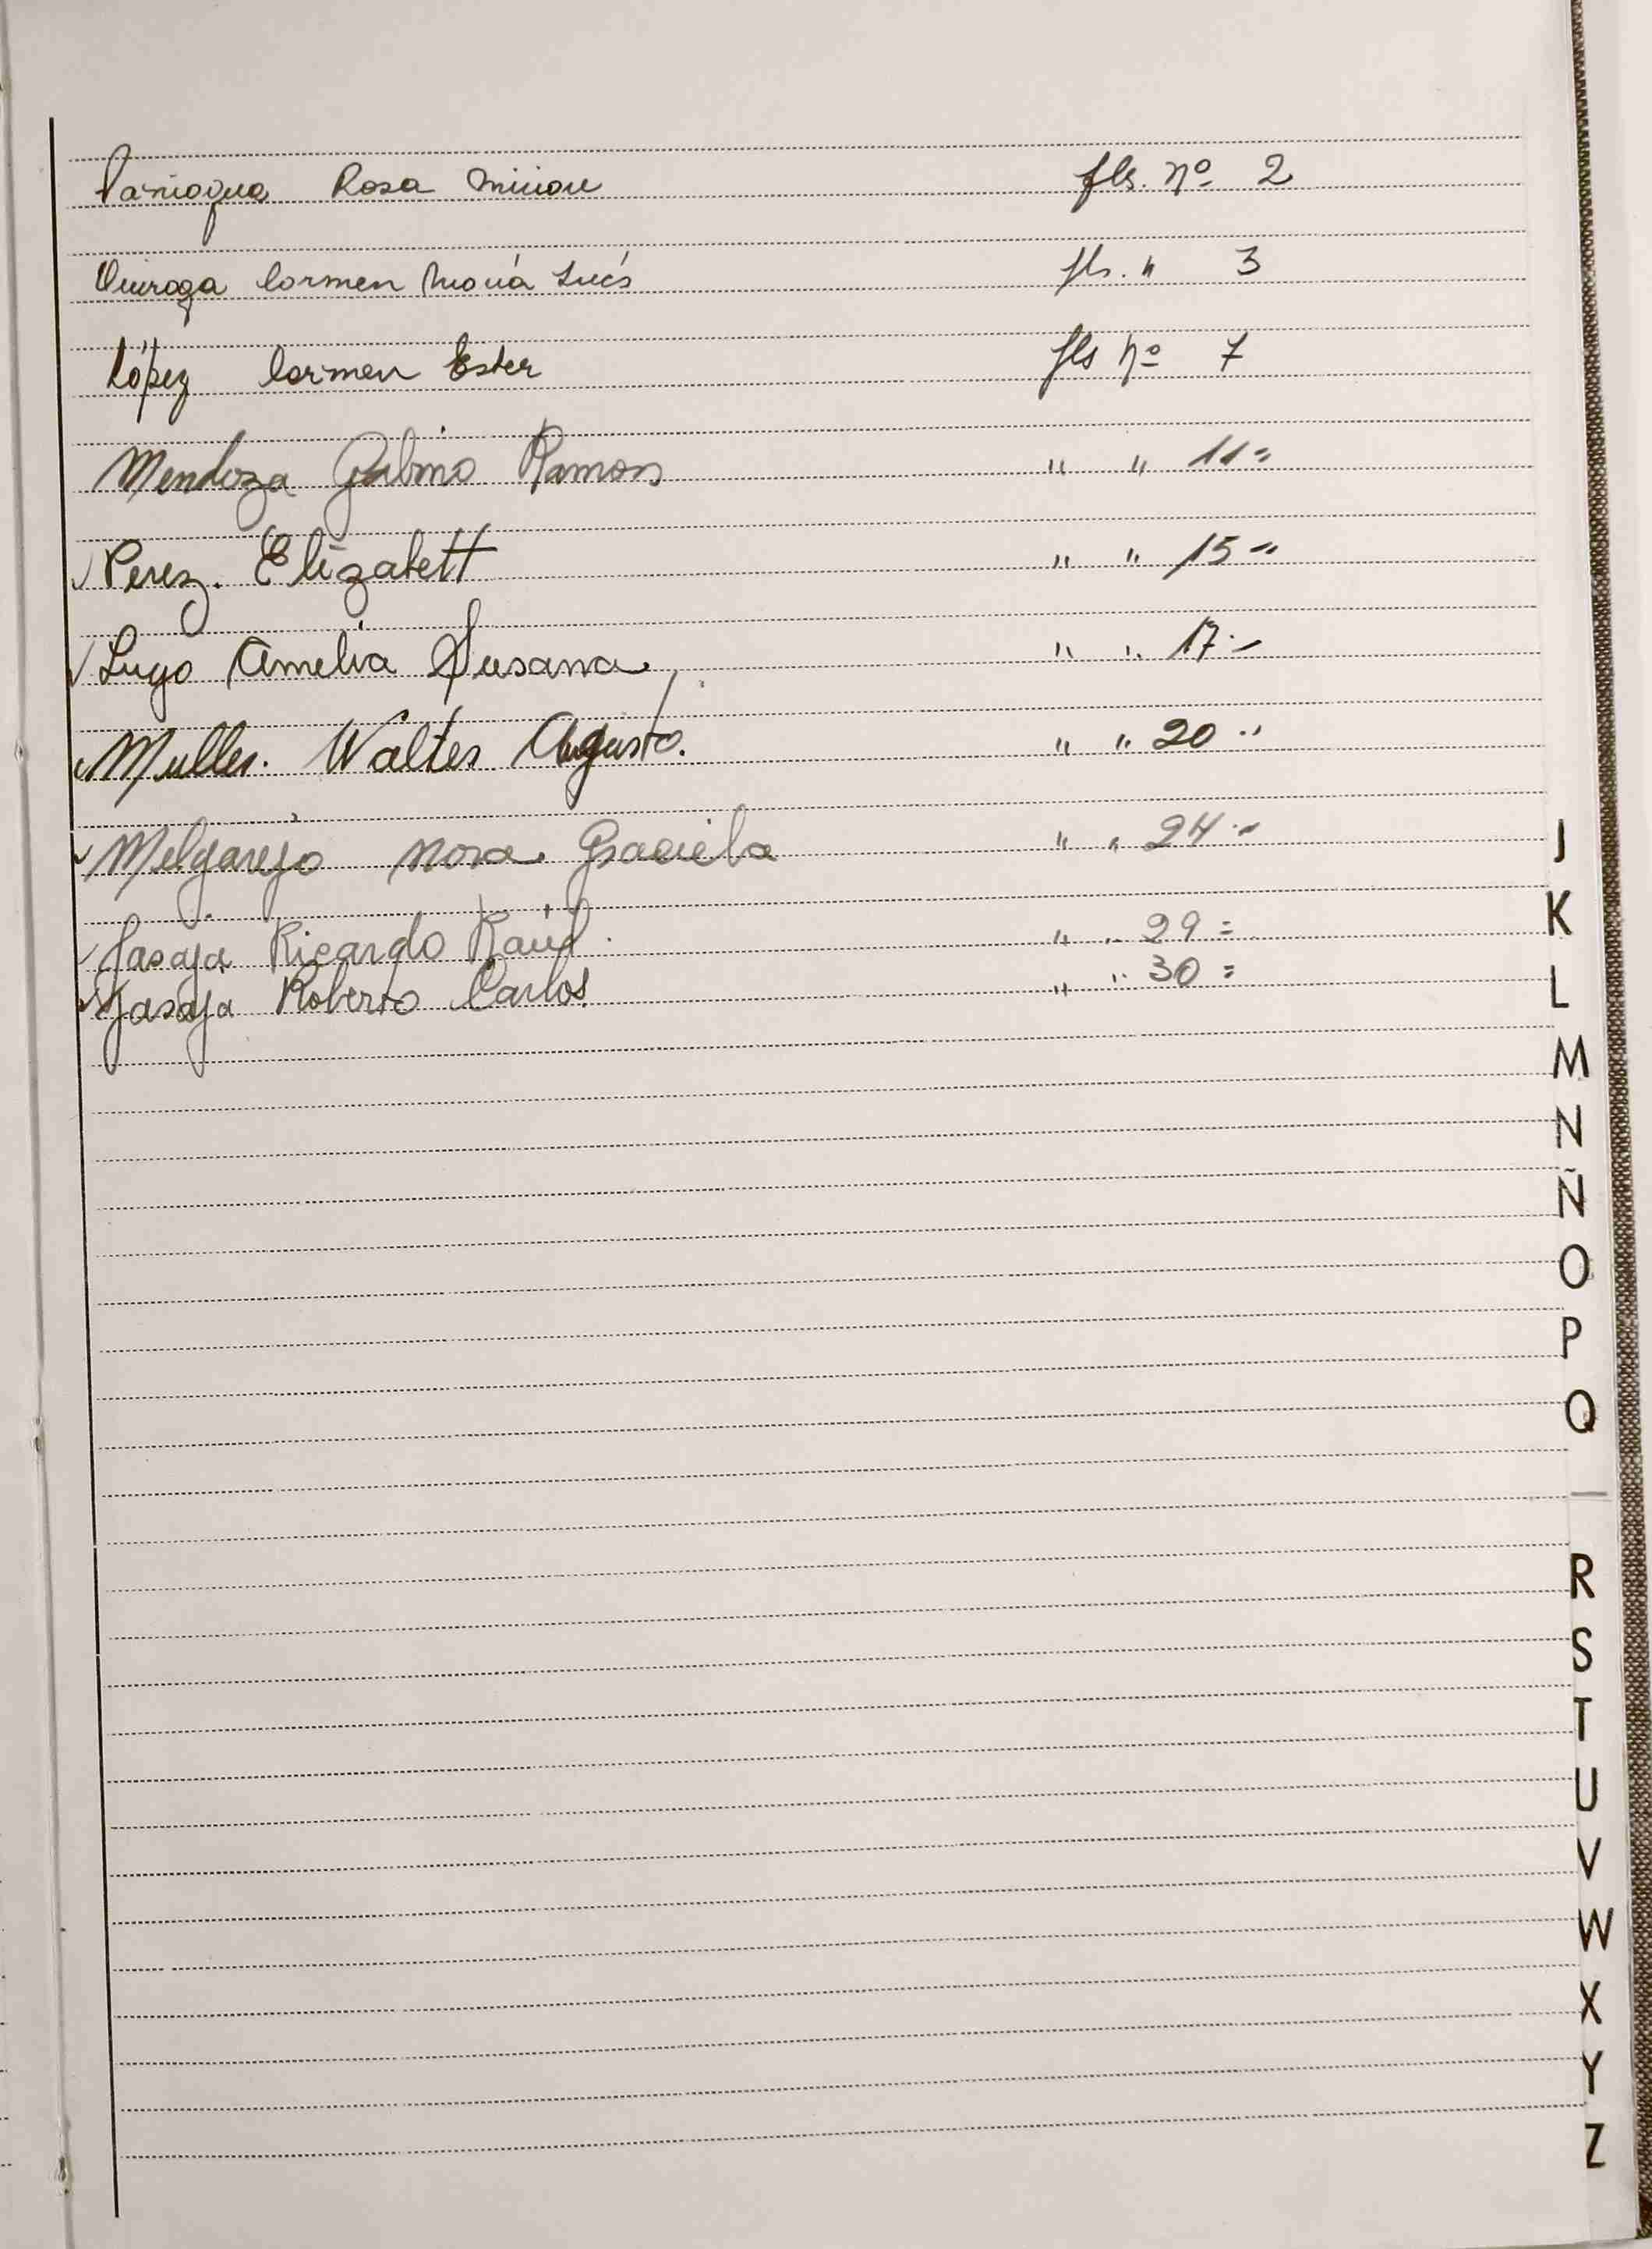 Paniagua Rosa Miriam fls. nº 2
Quiroga Carmen María Inés fls. " 3
López Carmen Ester fls nº 7
Mendoza Galvino Ramon " " 11 =
✓ Perez. Elizabett " " 15 "
✓ Lugo Amelia Susana " " 17 . -
✓ Muller. Walter Augusto. " " 20 "
✓ Melgarejo Nora Graciela " " 24 . -
✓ Jasaja Ricardo Raúl. " " 29 =
✓ Jasaja Roberto Carlos. " " 30 =
J
K
L
M
N
Ñ
O
P
Q
R
S
T
U
V
W
X
Y
Z